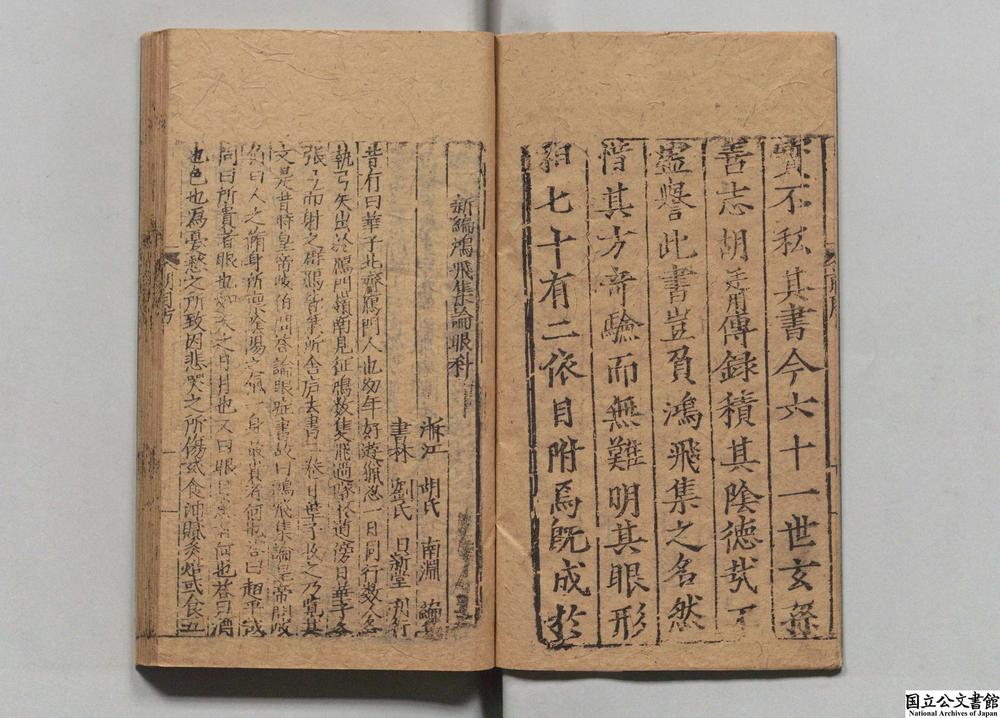 實不私其書今六十一世玄孫
善志胡廷用傳錄積其陰德哉
靈譽此書豈負鴻飛集之名然
惜其方奇驗而無難明其眼形
七十有二依目附焉既成於
新編鴻飛集論眼科
浙江 胡氏 南淵 論
書林 劉氏 日新堂 刊行
昔有日華子北齊鴈門人也幼年好遊獵忽一日同行數人各
執弓矢出於鴈門嶺南見征鴻數隻飛過墜於道傍日華子
張弓而射之群鴻皆集所含后去書一卷日華子收之乃覽其
文是昔時皇帝岐伯問答論眼症書故曰鴻飛集論皇帝問岐
曰人之備身所稟陰陽之氣一身最貴者何也答曰
問曰所貴者眼也如天之日月也又曰眼 何也答曰
也色也爲憂愁之所致因悲哭之所傷或食 或食五
国立公文書館
National Archives of Japan